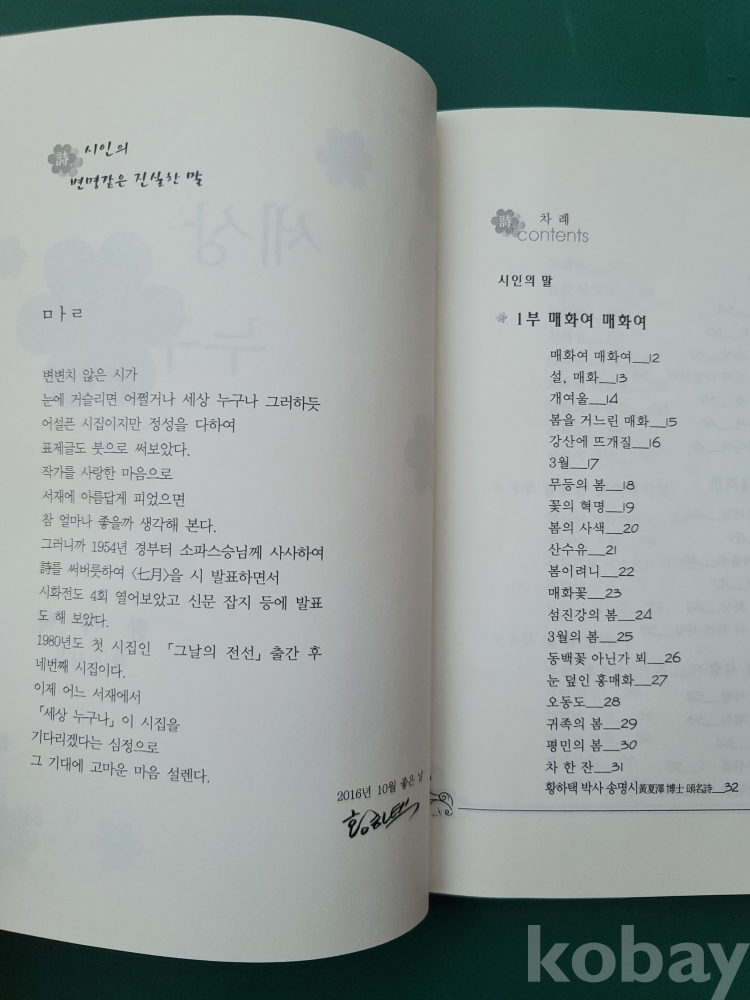 詩 시인의
변명같은 진실한 말
말
변변치 않은 시가
눈에 거슬리면 어쩔거나 세상 누구나 그러하듯
어설픈 시집이지만 정성을 다하여
표제글도 붓으로 써보았다.
작가를 사랑한 마음으로
서재에 아름답게 피었으면
참 얼마나 좋을까 생각해 본다.
그러니까 1954년 경부터 소파스승님께 사사하여
詩를 써버릇하여 〈七月〉을 시 발표하면서
시화전도 4회 열어보았고 신문 잡지 등에 발표
도 해 보았다.
1980년도 첫 시집인 「그날의 전선」 출간 후
네번째 시집이다.
이제 어느 서재에서
「세상 누구나」 이 시집을
기다리겠다는 심정으로
그 기대에 고마운 마음 설렌다.
2016년 10월 좋은 날
황하택
詩 차 례
contents
시인의 말
1부 매화여 매화여
매화여 매화여__12
설, 매화__13
개여울__14
봄을 거느린 매화__15
강산에 뜨개질__16
3월__17
무등의 봄__18
꽃의 혁명__19
봄의 사색__20
산수유__21
봄이려니__22
매화꽃__23
섬진강의 봄__24
3월의 봄__25
동백꽃 아닌가 뵈__26
눈 덮인 홍매화__27
오동도__28
귀족의 봄__29
평민의 봄__30
차 한 잔__31
황하택 박사 송명시黃夏澤 博士 頌名詩__32
kobay